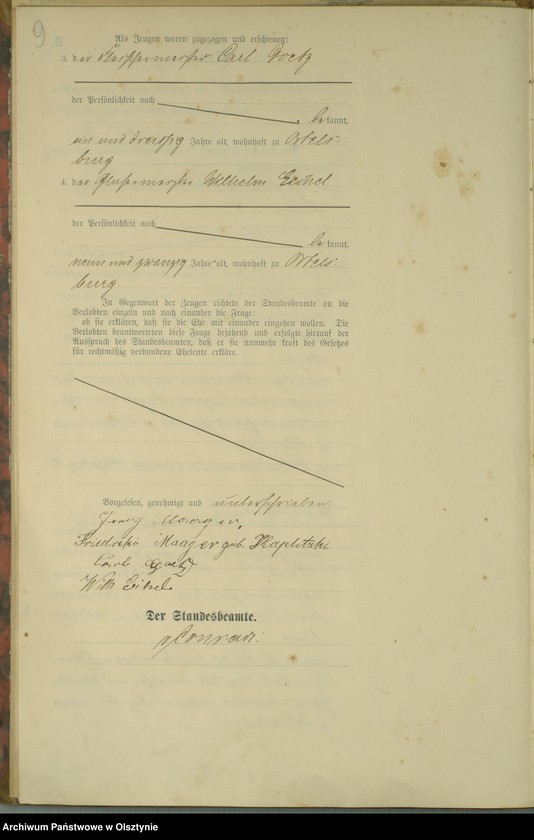 9
Als Zeugen waren zugezogen und erschienen:
3. der Fleischermeister Carl Goetz
der Persönlichkeit nach
be kannt,
ein und dreißig Jahre alt, wohnhaft zu Ortels-
burg
4. der Glasermeister Wilhelm
der Persönlichkeit nach
be kannt,
neun und zwanzig Jahre alt, wohnhaft zu Ortels-
burg.
In Gegenwart der Zeugen richtete der Standesbeamte an die
Verlobten einzeln und nach einander die Frage:
ob sie erklären, daß sie die Ehe mit einander eingehen wollen. Die
Verlobten beantworteten diese Frage bejahend und erfolgte hierauf der
Ausspruch des Standesbeamten, daß er sie nunmehr kraft des Gesetzes
für rechtmäßig verbundene Eheleute erkläre.
Vorgelesen, genehmigt und unterschrieben
Georg Maager,
Friedrike Maager geb. Kaplitzki
Carl Goetz
Wilh
Der Standesbeamte.
Conrad.
Archiwum Państwowe w Olsztynie